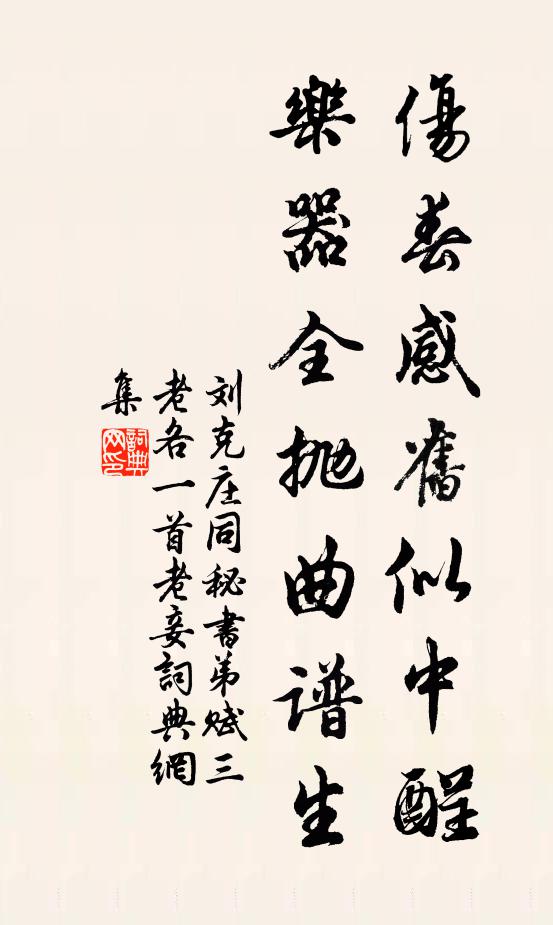 傷春感舊似中酲
樂器全抛曲谱生
刘克庄同秘書弟赋三
老各一首老妾詞典網
集
詞典
网印